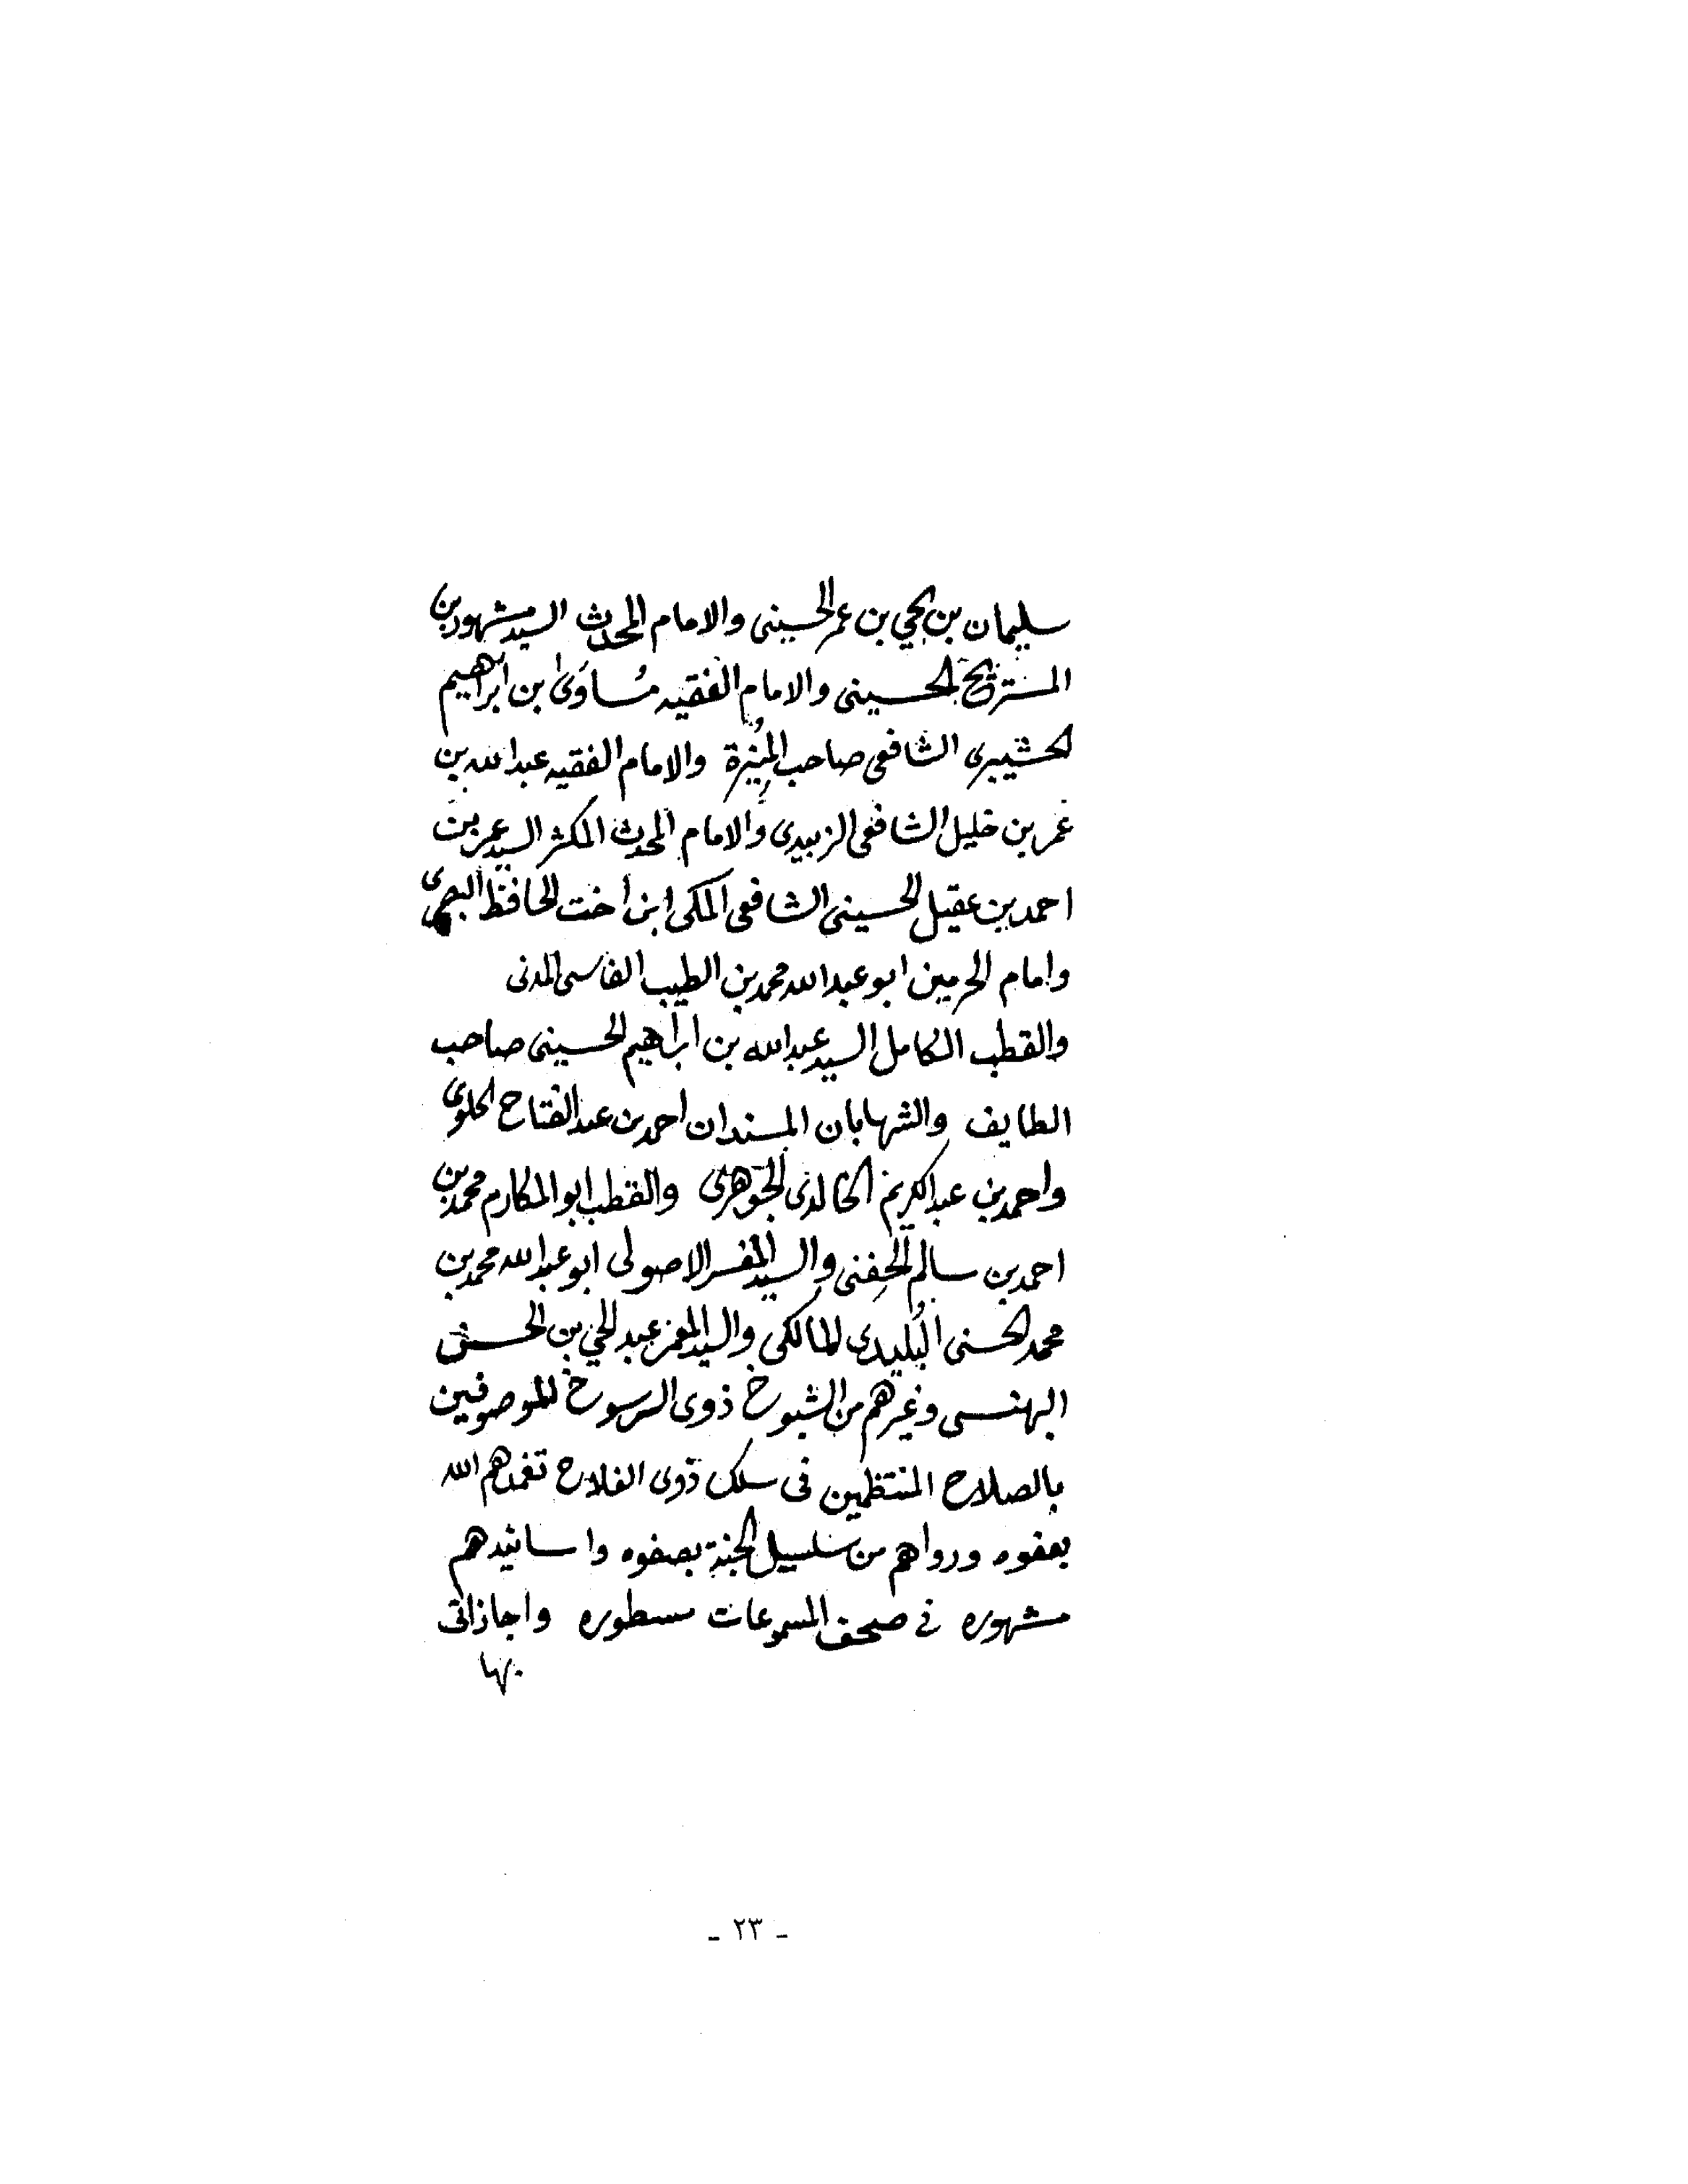 سليمان بن يحيي بن عمر الحسينى والامام المحدث السيد مشهور بن
المستريح الحسينى والامام الفقيه مُساوَى بن ابراهيم
الحشيبرى الشافعى صاحب المُنِيْرة والامام الفقيه عبد الله بن
عمر بن خليل الشافعى الزبيدى والامام المحدث المكثر السيد عمر بن
احمد بن عقيل الحسينى الشافعى المكى ابن اخت الحافظ البصرى
وامام الحرمين ابو عبد الله محمد بن الطيب الفاسى المدنى
والقطب الكامل السيد عبد الله بن ابراهيم الحسينى صاحب
الطايف والشهابان المسندان احمد بن عبد الفتاح الملوى
واحمد بن عبد الكريم الخالدى الجَوهرى والقطب ابو المكارم محمد بن
احمد بن سالم الحِفنى والسيد المفسر الاصولى ابو عبد الله محمد بن
محمد الحسنى البُليدى المالكى والسيد المعمر عبد الحي بن الحسن
البهنسى وغيرهم من الشيوخ ذوى الرسوخ الموصوفين
بالصلاح المنتظمين فى سلك ذوى الفلاح تغمدهم الله
بعفوه ورواهم من سلسبيل الجنة بصفوه واسانيدهم
مشهوره فى صحف المسموعات مسطوره واجازاتى
بها
ـ ٢٣ ـ